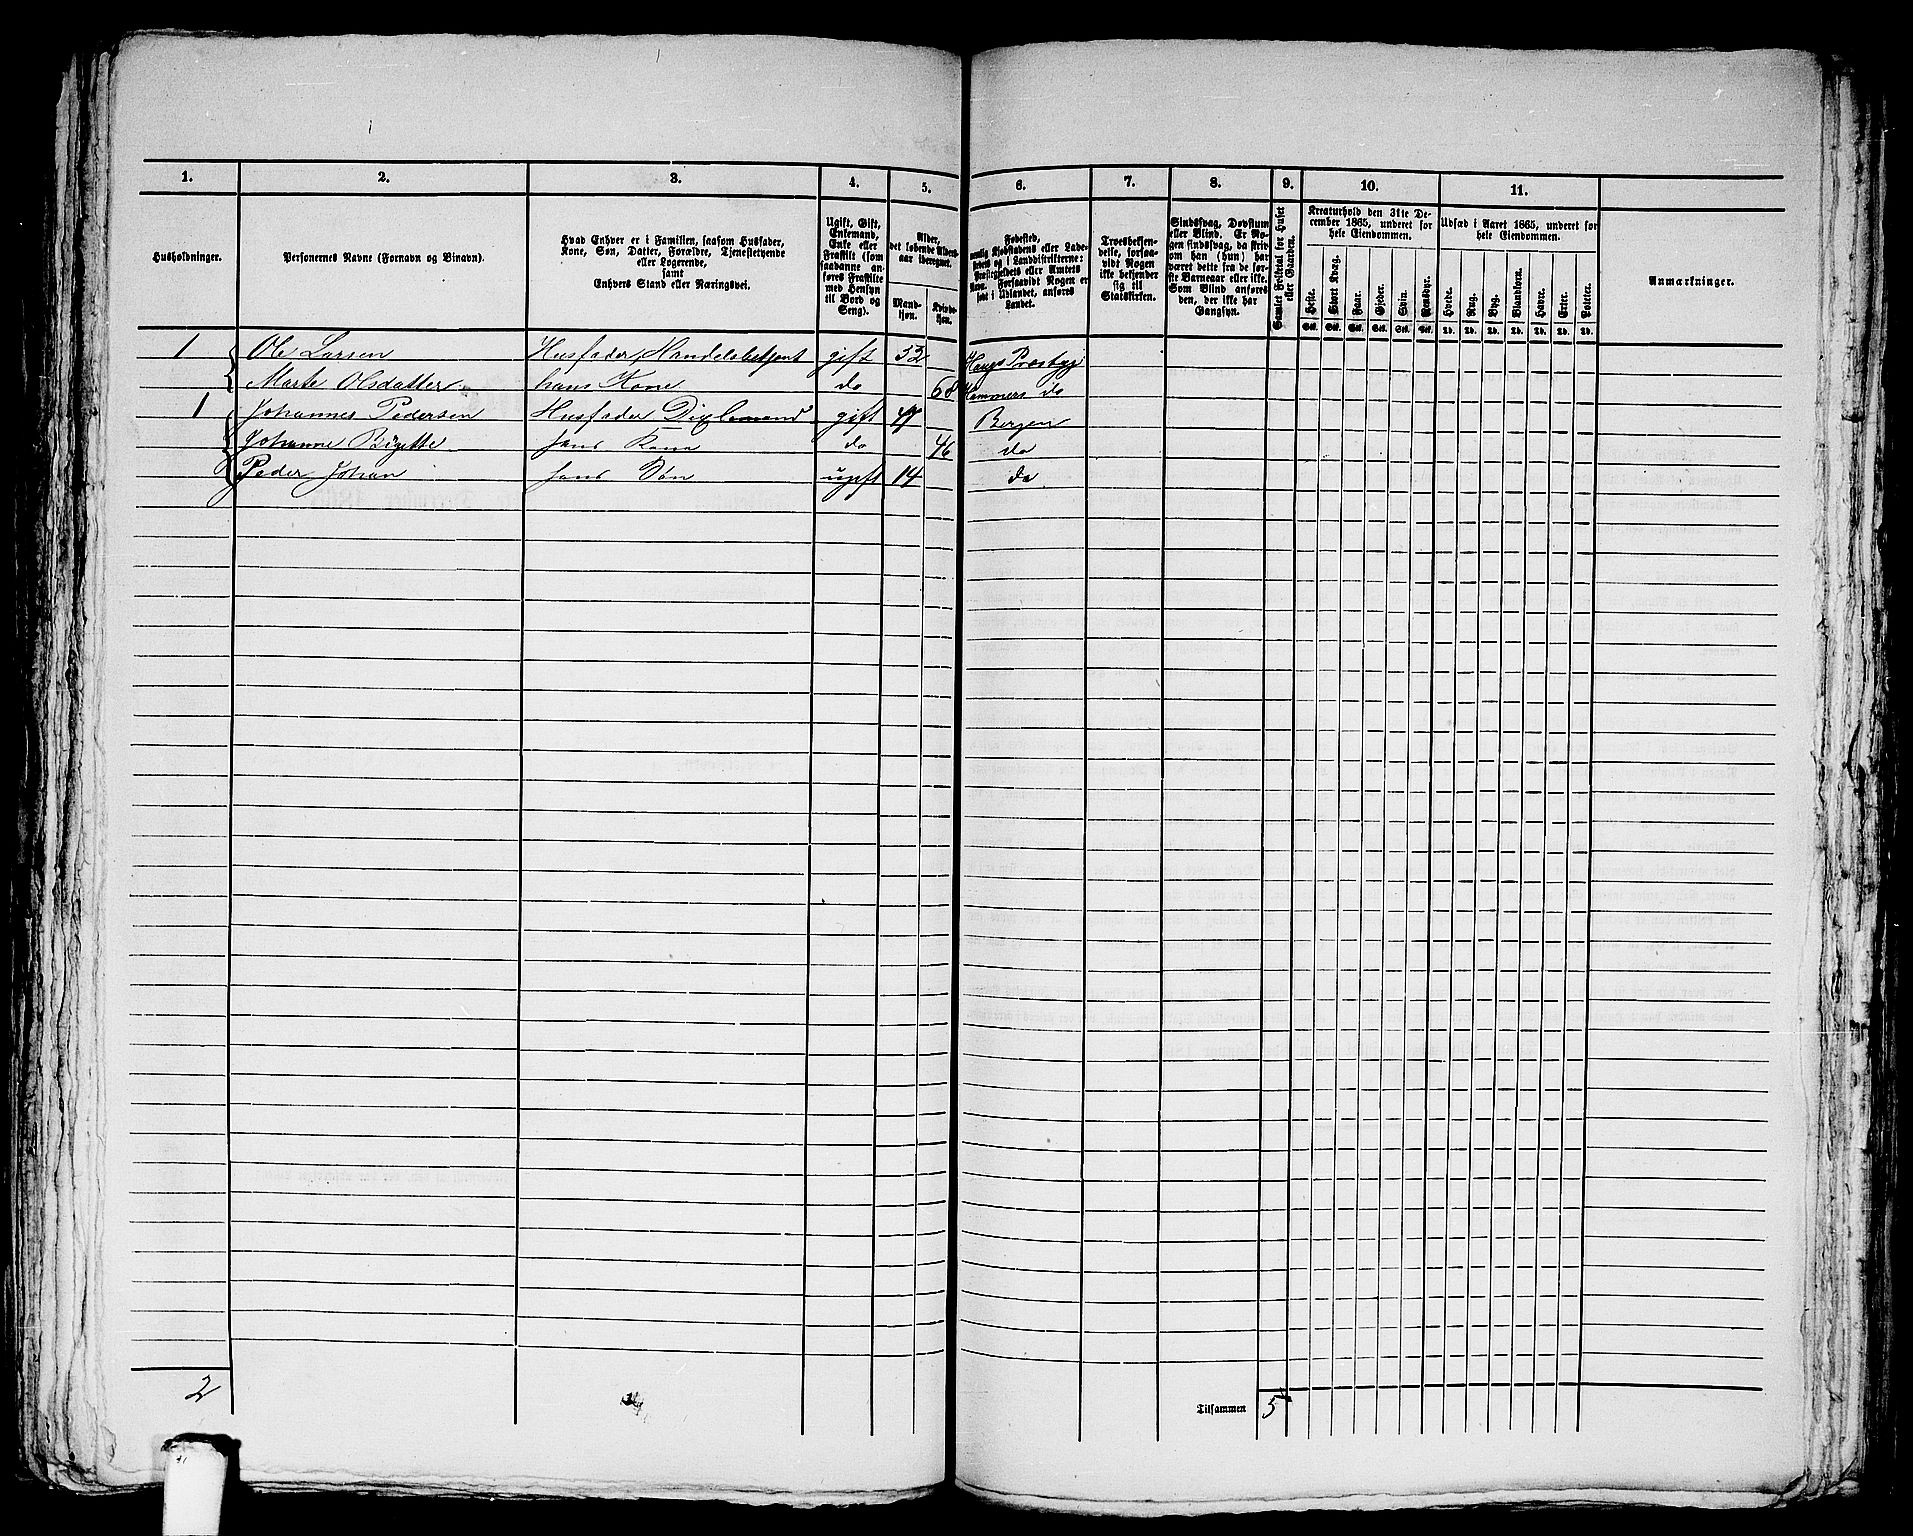 1. 2. 3. 4. 5. 6. 7. 8. 9. 10. 11.
Husholdninger.
Personernes Navne (Fornavn og Binavn).
Hvad Enhver er i Familien, saasom Husfader,
Kone, Søn, Datter, Forældre, Tjenestetyende
eller Logerende,
samt
Enhvers Stand eller Næringsvei.
Ugift, Gift,
Enkemand,
Enke eller
Fraskilt (som
saadanne an-
føres Fraskilte
med Hensyn
til Bord og
Seng).
Alder,
det løbende Alders-
aar iberegnet.
Mand-
kjøn.
Kvinde-
kjøn.
Fødested,
nemlig Kjøbstadens eller Lade-
stedets og i Landdistrikterne:
Præstegjeldets eller Amtets
Navn. Forsaavidt Nogen er
født i Udlandet, anføres
Landet.
Troesbekjen-
delse, forsaa-
vidt Nogen
ikke bekjender
sig til
Statskirken.
Sindssvag, Døvstum
eller Blind. Er No-
gen sindssvag, da skri-
ves om han (hun) har
været dette fra de før-
ste Barneaar eller ikke.
Som Blind anføres
den, der ikke har
Gangsyn.
Samlet Folketal for Huset
eller Gaarden.
Kreaturhold den 31te De-
cember 1865, underet for
hele Eiendommen.
Heste. Stort Kvæg. Faar. Gjeder. Svin. Rensdyr.
Stk. Stk. Stk. Stk. Stk. Stk.
Udsæd i Aaret 1865, underet for
hele Eiendommen.
Hvede. Rug. Byg. Blandkorn. Havre. Erter. Poteter.
Td. Td. Td. Td. Td. Td. Td.
Anmærkninger.
1 Ole Larsen Husfader, Handelsbetjent gift 53 Haugs Præstgj
Marte Olsdatter hans Kone do 68 Hammers do
1 Johannes Pedersen Husfader gift 47 Bergen
Johanne Birgitte hans Kone do 46 do
Peder Johan hans Søn ugift 14 do
2
Tilsammen 5